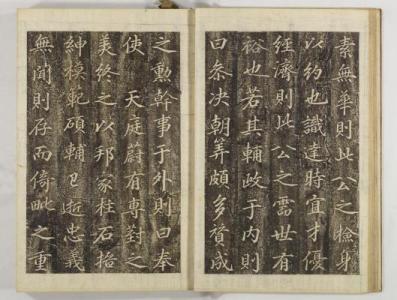 素無華則此公之檢身
以約也識達時宜才優
經濟則此公之霈世有
裕也若其輔政于內則
曰參决朝筭頗多賛成
之勲幹事于外則曰奉
使天庭蔚有專對之
美終之以邦家柱石搢
紳模範碩輔卍逝忠義
無聞則存而倚毗之重